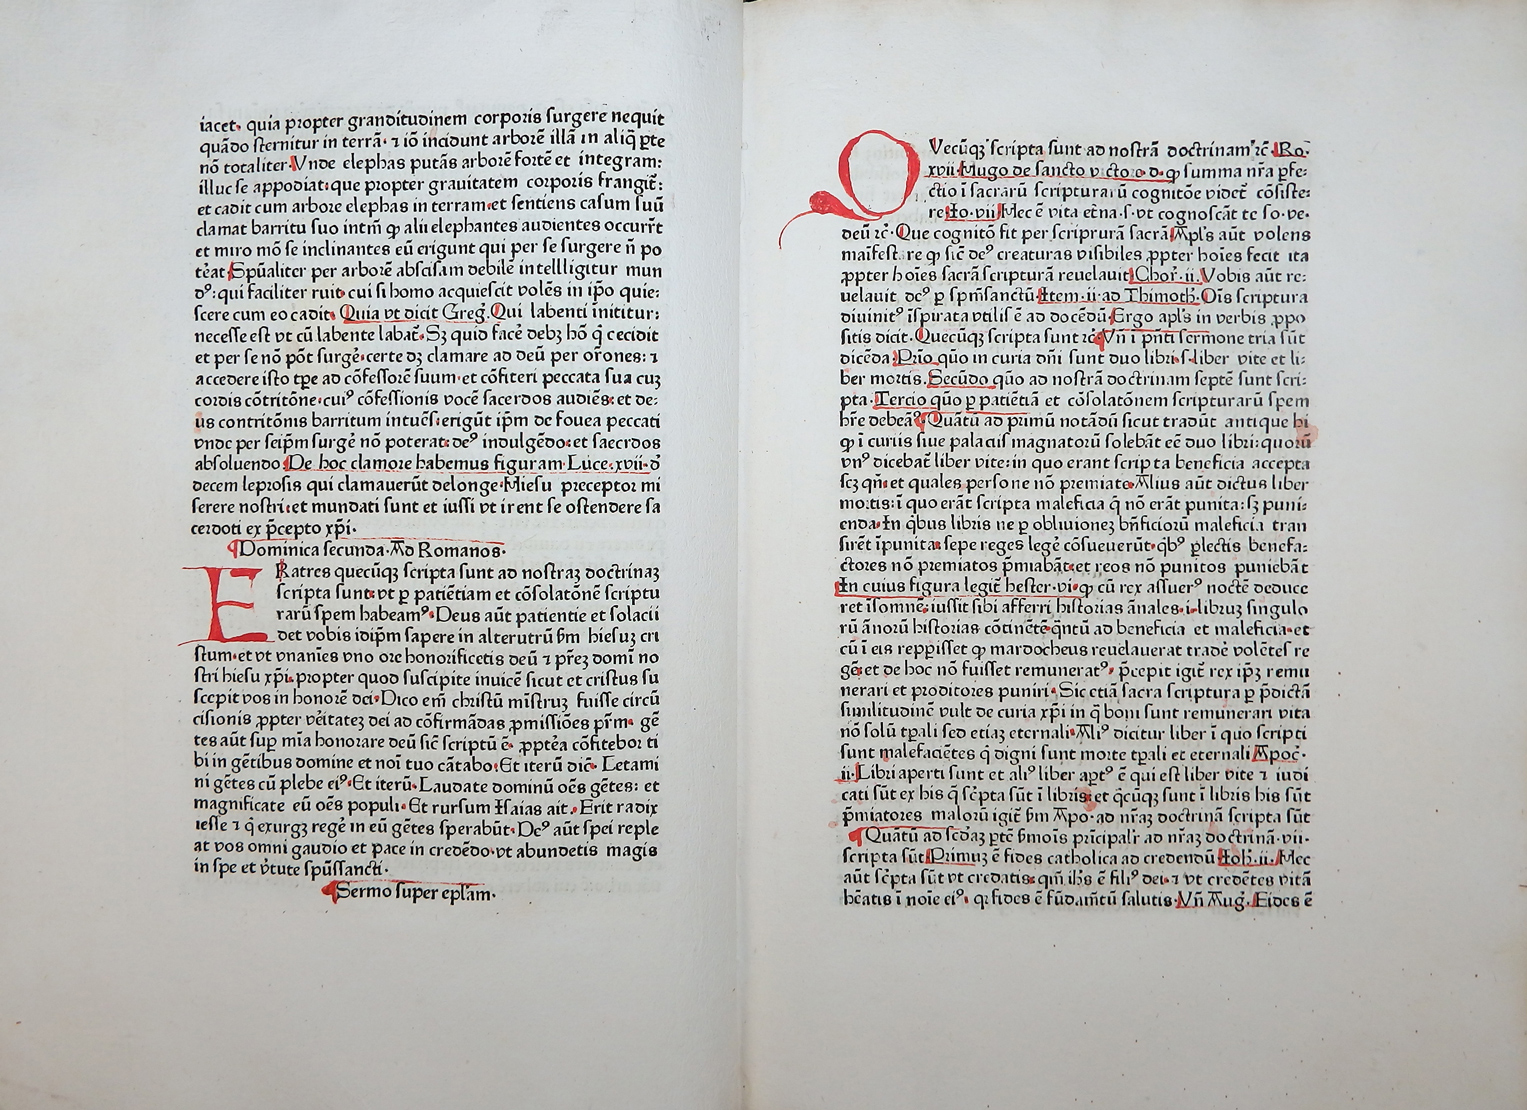 iacet. quia propter granditudinem corporis surgere nequit
quãdo sternitur in terrã. ⁊ iõ incidunt arborẽ illã in aliq̃ ꝑte
nõ totaliter. Vnde elephas putãs arborẽ fortẽ et integram:
illuc se appodiat. que propter grauitatem corporis frangit̃:
et cadit cum arbore elephas in terram. et sentiens casum suũ
clamat barritu suo intm̃ ꝙ alii elephantes audientes occurrt̃
et miro mõ se inclinantes eũ erigunt qui per se surgere ñ po
tẽat. Spũaliter per arborẽ abscisam debilẽ intellligitur mun
dꝰ: qui faciliter ruit. cui si homo acquiescit volẽs in ip̃o quie:
scere cum eo cadit. Quia vt dicit Greg̃. Qui labenti inititur:
necesse est vt cũ labente labat̃. Sꝫ quid facẽ debꝫ hõ q̃ cecidit
et per se nõ põt surgẽ. certe dꝫ clamare ad deũ per orõnes: ⁊
accedere isto tꝑe ad cõfessorẽ suum. et cõfiteri peccata sua cuꝫ
cordis cõtritõne. cuiꝰ cõfessionis vocẽ sacerdos audiẽs. et de:
us contritõnis barritum intuẽs. erigũt ip̃m de fouea peccati
vnde per seip̃m surgẽ nõ poterat. deꝰ indulgẽdo. et saecrdos
absoluendo. De hoc clamore habemus figuram. Luce. xvii. d̃
decem leprosis qui clamauerũt delonge. Hiesu preceptor mi
serere nostri. et mundati sunt et iussi vt irent se ostendere sa
cerdoti ex p̃cepto xp̃i.
¶ Dominica secunda. Ad Romanos.
FRatres quecũqꝫ scripta sunt ad nostraꝫ doctrinaꝫ
scripta sunt. vt ꝑ patiẽtiam et cõsolatõnẽ scriptu
rarũ spem habeamꝰ. Deus aũt patientie et solacii
det vobis idip̃m sapere in alterutrũ ẜm hiesuꝫ cri
stum. et vt vnanĩes vno ore honorificetis deũ ⁊ pr̃eꝫ domĩ no
stri hiesu xp̃i. propter quod suscipite inuicẽ sicut et cristus su
scepit vos in honorẽ dei. Dico em̃ christũ mĩstruꝫ fuisse circũ
cisionis ꝓpter vẽitateꝫ dei ad cõfirmãdas ꝓmissiões pr̃m. gẽ
tes aũt suꝑ mĩa honorare deũ sic̃ scriptũ ẽ. ꝓptẽa cõfitebor ti
bi in gẽtibus domine et noĩ tuo cãtabo. Et iterũ dic̃. Letami
ni gẽtes cũ plebe eiꝰ. Et iterũ. Laudate dominũ oẽs gẽtes: et
magnificate eũ oẽs populi. Et rursum Isaias ait. Erit radix
iesse ⁊ q̃ exurgꝫ regẽ in eũ gẽtes sperabũt. Deꝰ aũt spei reple
at vos omni gaudio et pace in credẽdo. vt abundetis magis
in spe et ṽtute spũssancti.
¶ Sermo super ep̃lam.
QVecũqꝫ scripta sunt ad nostrã doctrinam ⁊c̃. Ro.
xvii. Hugo de sancto victore. d. ꝙ summa nr̃a ꝑfe:
ctio ĩ sacrarũ scripturarũ cognitõe videt̃ cõsiste:
re. Io. vii. Hec ẽ vita et̃na. s. vt cognoscãt te so. ve.
deũ ⁊c̃. Que cognitõ fit per scripturã sacrã. Apl̃s aũt volens
maĩfestare ꝙ sic̃ deꝰ creaturas visibiles ꝓpter hoĩes fecit ita
ꝓpter hoĩes sacrã scripturã reuelauit. Chor̃. ii. Vobis aũt re:
uelauit deꝰ ꝑ spm̃sanctũ. Item. ii. ad Thimoth̃. Oĩs scriptura
diuinitꝰ ĩspirata vtilis ẽ ad docẽdũ. Ergo apl̃s in verbis ꝓpo
sitis dicit. Quecũqꝫ scripta sunt ⁊c̃. Vñ ĩ pñti sermone tria sũt
dicẽda. Prĩo quõ in curia dñi sunt duo libri. s. liber vite et li:
ber mortis. Secũdo quõ ad nostrã doctrinam septẽ sunt scri:
pta. Tercio quõ ꝑ patiẽtiã et cõsolatõnem scripturarũ spem
hr̃e debeãꝰ. ¶ Quãtũ ad primũ notãdũ sicut tradũt antique hi
ꝙ ĩ curiis siue palaciis magnatorũ solebãt eẽ duo libri: quorũ
vnꝰ dicebat̃ liber vite: in quo erant scripta beneficia accepta
scꝫ qñ. et quales persone nõ premiate. Alius aũt dictus liber
mortis: ĩ quo erãt scripta maleficia q̃ nõ erãt punita: sꝫ puni:
enda. In q̃bus libris ne ꝑ obliuioneꝫ bñficiorũ maleficia tran
sirẽt ĩpunita. sepe reges legẽ cõsueuerũt. q̃bꝰ ꝑlectis benefa:
ctores nõ premiatos p̃miabãt. et reos nõ punitos puniebãt
In cuius figura legit̃ hester. vi. ꝙ cũ rex assuerꝰ noctẽ deduce
ret ĩsomnẽ. iussit sibi afferri historias ãnales. i. libruꝫ singulo
rũ ãnorũ historias cõtinẽtẽ. q̃ntũ ad beneficia et maleficia. et
cũ ĩ eis repp̃isset ꝙ mardocheus reuelauerat tradẽ volẽtes re
gẽ. et de hoc nõ fuisset remuneratꝰ. p̃cepit igit̃ rex ip̃ꝫ remu
nerari et proditores puniri. Sic etiã sacra scriptura ꝑ p̃dictã
similitudinẽ vult de curia xp̃i in q̃ boni sunt remunerari vita
nõ solũ tꝑali sed etiaꝫ eternali. Aliꝰ dicitur liber ĩ quo scripti
sunt malefaciẽtes q̃ digni sunt morte tꝑali et eternali. Apoc̃.
ii. Libri aperti sunt et aliꝰ liber aptꝰ ẽ qui est liber vite ⁊ iudi
cati sũt ex his q̃ sc̃pta sũt ĩ libris. et q̃cũqꝫ sunt ĩ libris his sũt
p̃miatores malorũ igit̃ ẜm Apo. ad nr̃aꝫ doctrinã scripta sũt
¶ Quãtũ ad sc̃daꝫ ꝑtẽ ẜmoĩs prĩcipalr̃ ad nr̃aꝫ doctrinã. vii.
scripta sũt. Primuꝫ ẽ fides catholica ad credendũ. Ioh̃. ii. Hec
aũt sc̃pta sũt vt credatis. qm̃ ih̃s ẽ filiꝰ dei. ⁊ vt credẽtes vitã
hẽatis ĩ noĩe eiꝰ. qr fides ẽ fũdam̃tũ salutis. Vñ Aug̃. Fides ẽ